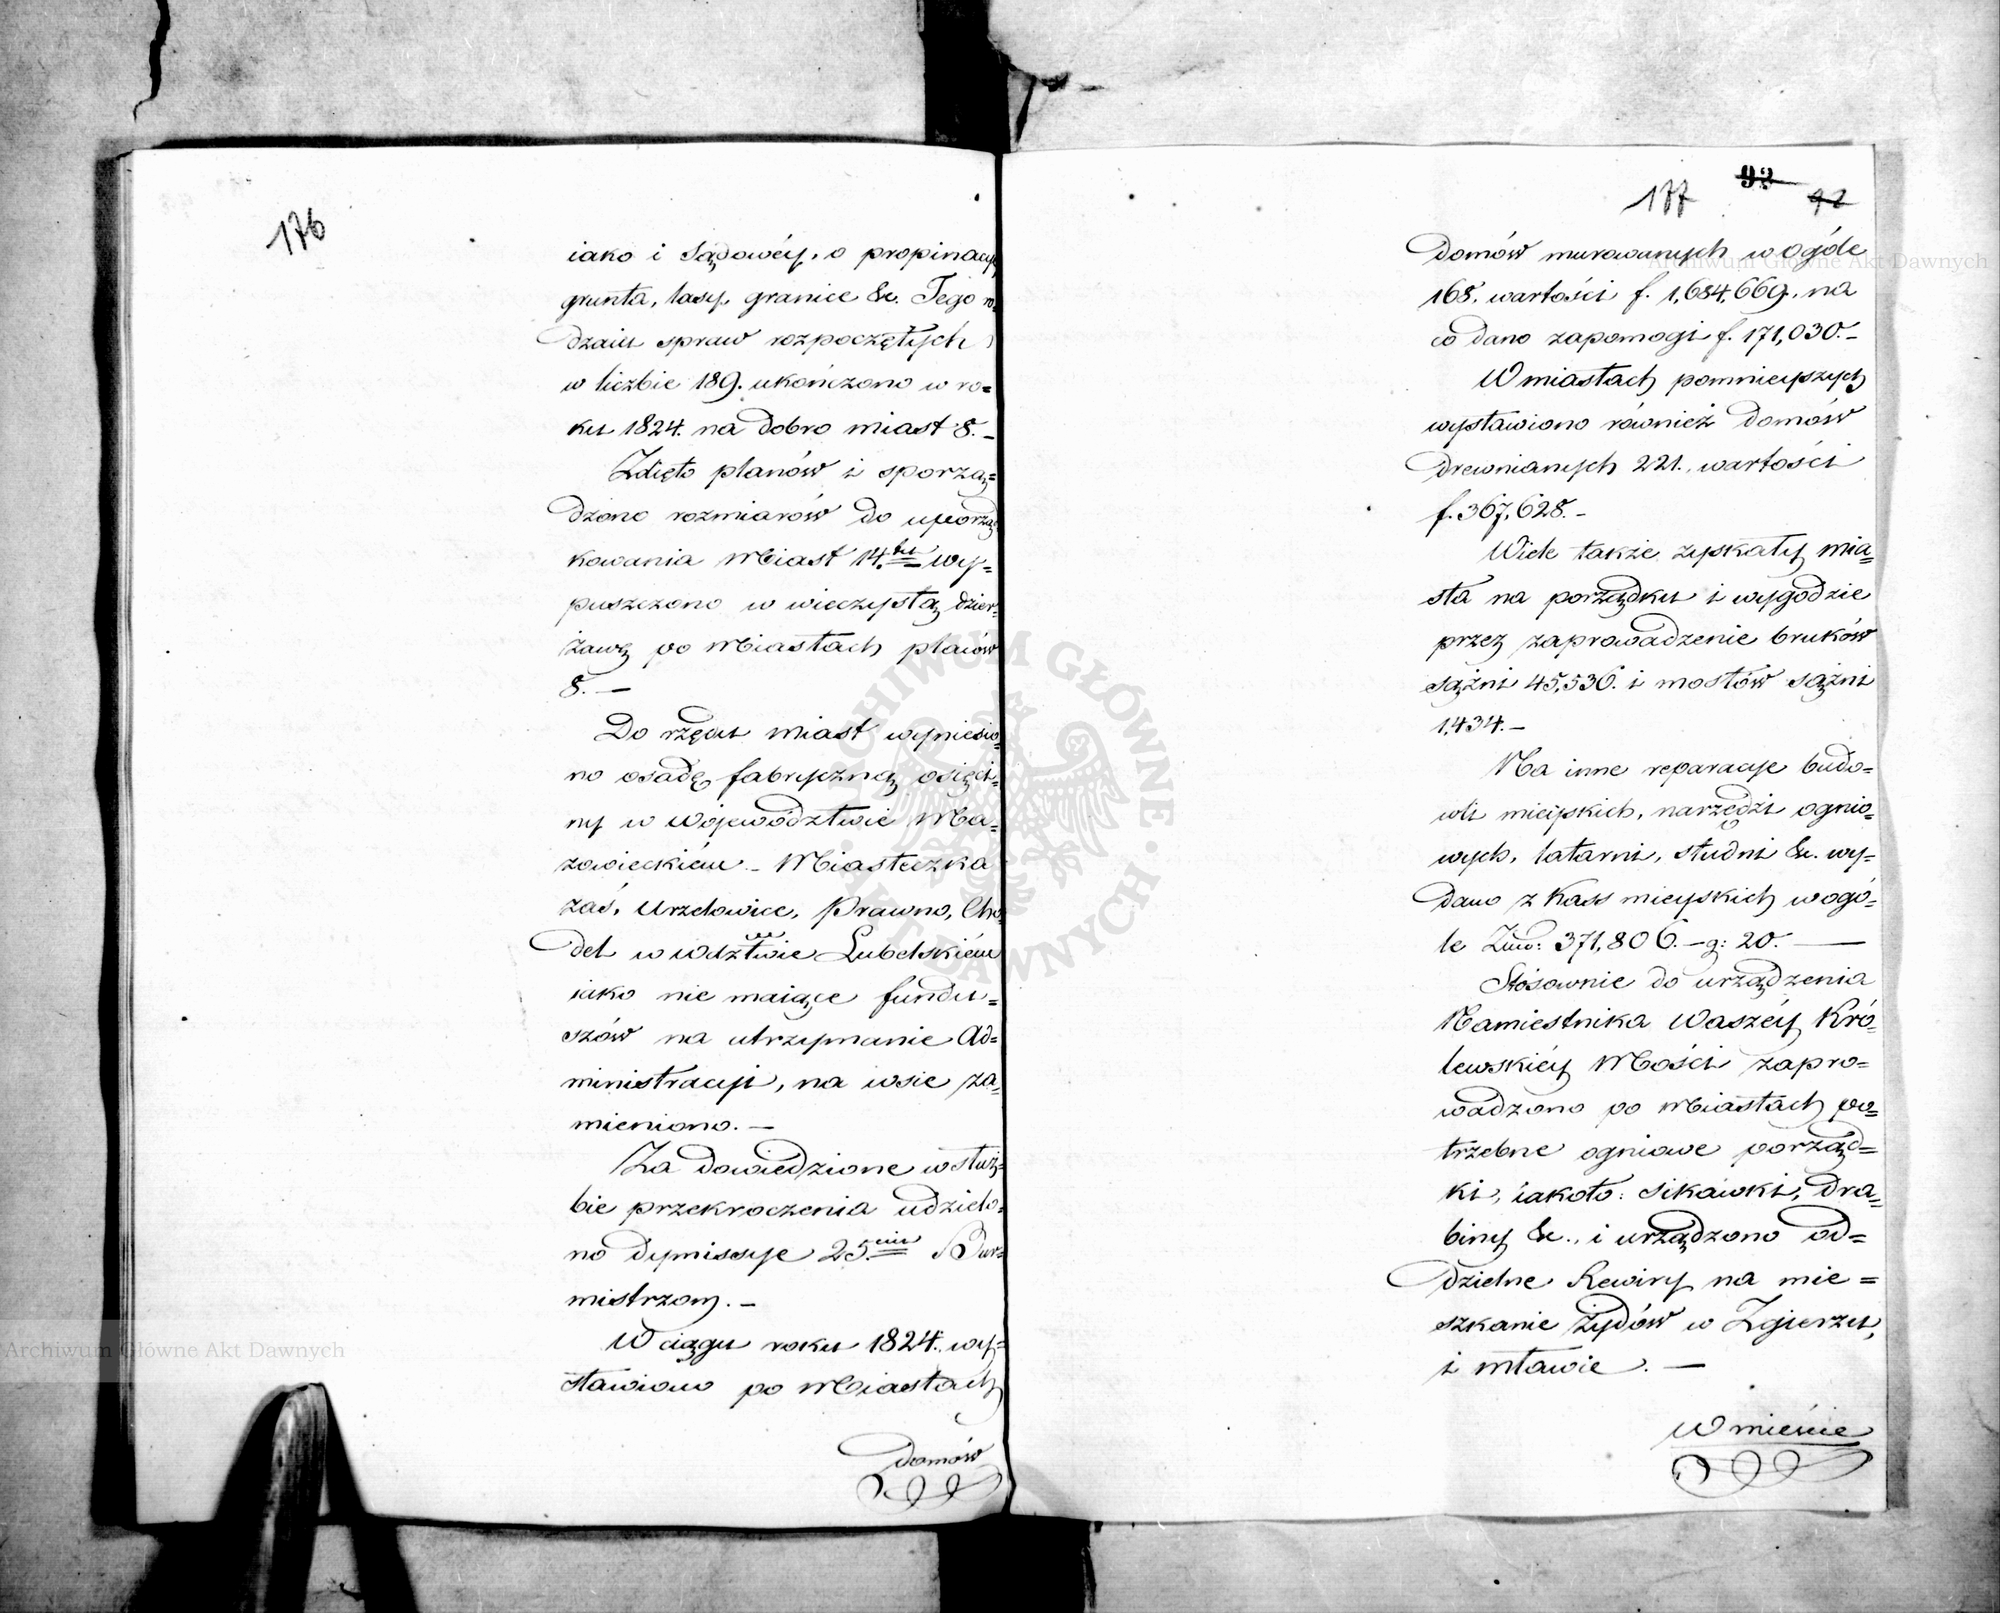 176
iako i Sądowéy, o propinacye
grunta, lasy, granice &c. Tego ro-
dzaiu spraw rozpoczętych
w liczbie 189. ukończono w ro=
ku 1824. na dobro miast 8. –
Zdięto planów i sporzą=
dzono rozmiarów do uporząd
kowania Miast 14.tu wy=
puszczono w wieczystą dzier-
żawę po Miastach placów
8. —
Do rzędu miast wyniesio-
no osadę fabryczną osięci-
ny w Wojewódźtwie Ma=
zowieckiém – Miasteczka
zaś, Urzędowice, Prawno, Cho-
del w Wdztwie Lubelskiém
iako nie maiące fundu=
szów na utrzymanie Ad=
ministracyi, na wsie za-
mieniono. —
Za dowiedzione w służ-
bie przekroczenia udzielo-
no dymissye 25.ciu Bur-
mistrzom. –
W ciągu roku 1824. wy=
stawiono po Miastach
domów
177
93
92
Domów murowanych w ogóle
168. wartości f. 1,684,669. na
co dano zapomogi f. 171,030. –
W miastach pomnieyszych
wystawiono również Domów
drewnianych 221. wartości
f. 367,628. –
Wiele także zyskały mia=
sta na porządku i wygodzie
przez zaprowadzenie bruków
sążni 45,536. i mostów sążni
1,434. –
Na inne reparacye budo=
wli mieyskich, narzędzi ognio=
wych, latarni, studni &c. wy=
dano z Kass mieyskich wogó=
le 371,806. – g: 20. —
Stósownie do urządzenia
Namiestnika Waszéy Kró=
lewskiéy Mości zapro=
wadzono po Miastach po=
trzebne ogniowe porząd=
ki, iakoto: sikawki, dra=
biny &c., i urządzono od=
dzielne Rewiry na mie=
szkanie żydów w Zgierzu,
i Mławie. —
W mieście
Archiwum Główne Akt Dawnych
Archiwum Główne Akt Dawnych
ARCHIWUM GŁÓWNE • AKT DAWNYCH •